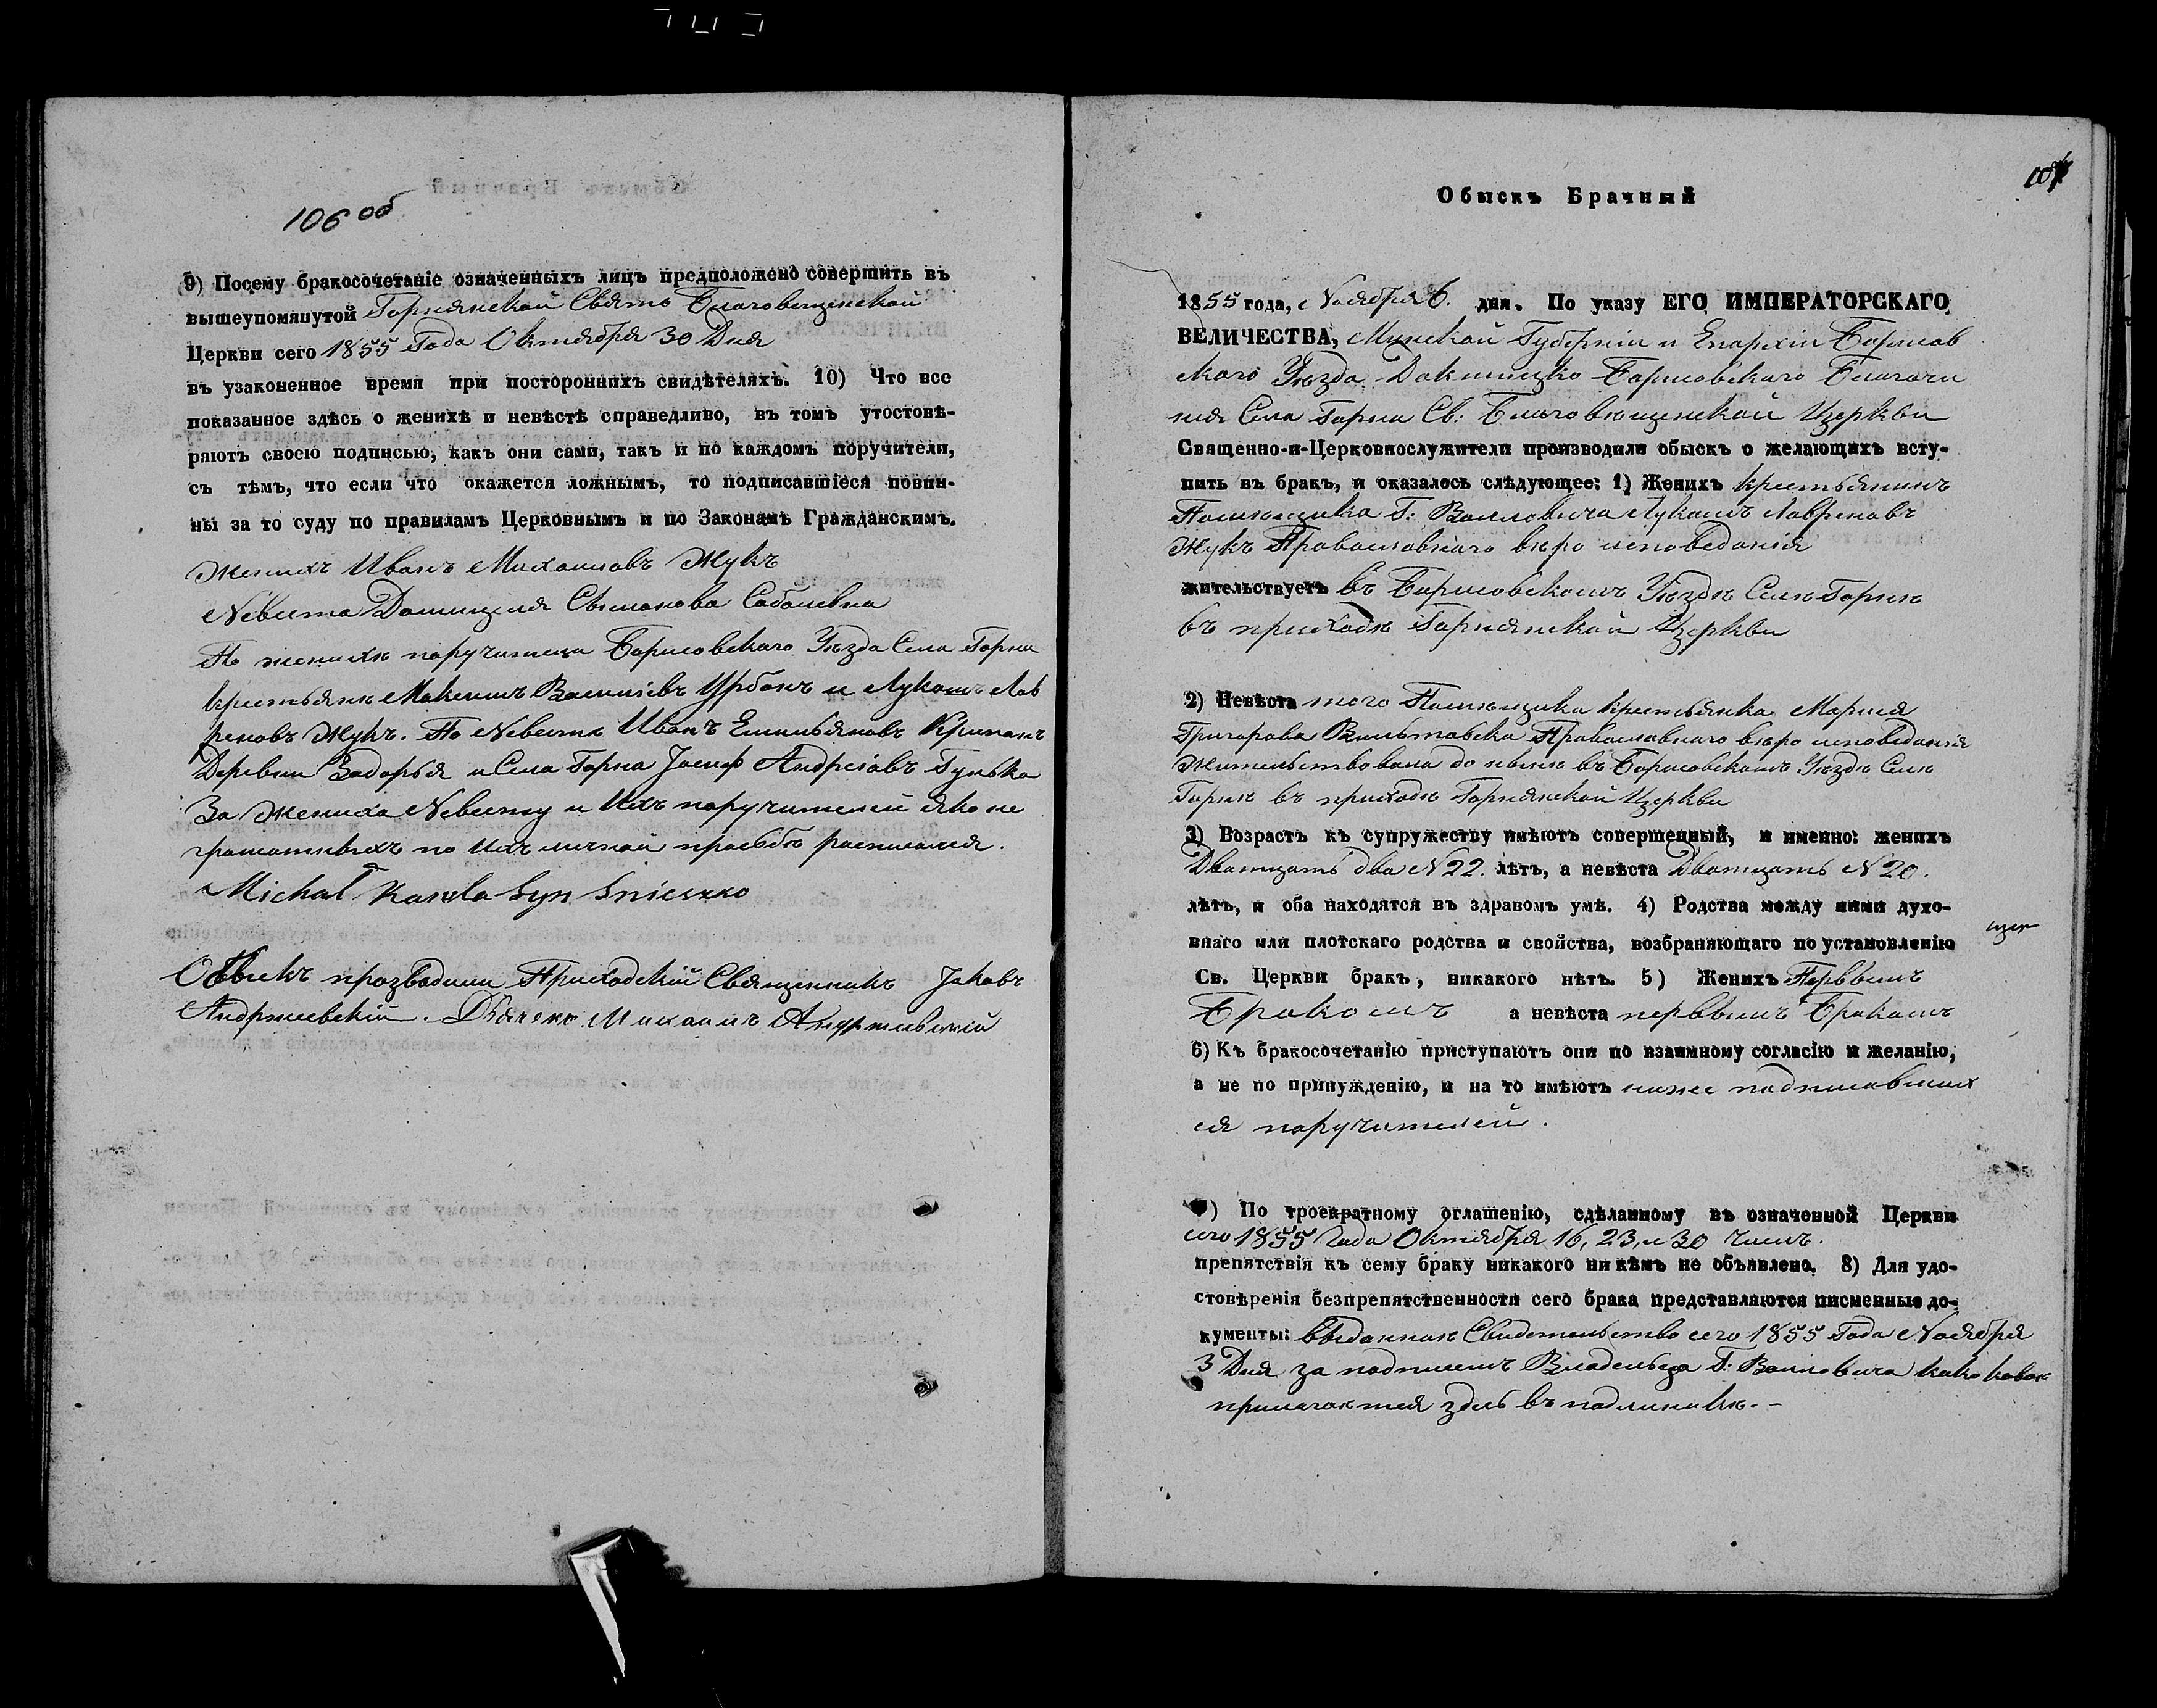 106 об
9) Посему бракосочетаніе означенныхъ лицъ предположено совершить въ
вышеупомянутой Горнянской Свято Благовещенской
Церкви сего 1855 Года Октября 30 Дня
въ узаконенное время при постороннихъ свидѣтеляхъ. 10) Что все
показанное здѣсь о женихѣ и невѣстѣ справедливо, въ томъ утостовѣ-
ряютъ своею подписью, какъ они сами, такъ и по каждомъ поручители,
съ тѣмъ, что если что окажется ложнымъ, то подписавшіеся повин-
ны за то суду по правиламъ Церковнымъ и по Законамъ Гражданскимъ.
Женихъ Иванъ Михаиловъ Жукъ
Невеста Домицеля Сымонова Соболевна
По женихѣ поручители Борисовскаго Уѣзда Села Горна
крестьянѣ Максимъ Васильевъ Урбанъ и Лукашъ Лав
реновъ Жукъ. По Невестѣ Иванъ Емильяновъ
Деревни Задорья и Села Горна Іосиф Андреіовъ Гунька
За Жениха Невесту и Ихъ поручителей яко не
грамотныхъ по ихъ личной прозьбѣ росписался.
Michał Karola Syn Snieszko
Обыскъ прозводили Приходскій Священникъ Іаковъ
Андржиевскій. Михаилъ Андржиевскій
107
Обыскъ Брачный
1855 года, Ноября 6. дня. По указу ЕГО ИМПЕРАТОРСКАГО
ВЕЛИЧЕСТВА, Минской Губерніи и Епархіи Борисов
скаго Уѣзда Докшицко Борисовскаго Благочи
нія Села Горна Св: Благовѣщенской Церкви
Священно-и-Церковнослужители производили обыскъ о желающихъ всту-
пить въ бракъ, и оказалось слѣдующее: 1) Женихъ крестьянинъ
Помѣщика Г: Воловича Лукашъ Лавреновъ
Жукъ Православнаго вѣро исповеданія
жительствуетъ въ Борисовскомъ Уѣздѣ Селѣ Горнѣ
въ приходѣ Горнянской Церкви
2) Невѣста того Помѣщика крестьянка Марися
Григорова Православнаго вѣро исповеданія
Жительствовала до нынѣ въ Борисовскомъ Уѣздѣ Селѣ
Горнѣ въ приходѣ Горнянской Церкви
3) Возрастъ къ супружеству имѣютъ совершенный, и именно: женихъ
Дватцать два N 22. лѣтъ, а невѣста Дватцать N 20.
лѣтъ, и оба находятся въ здравомъ умѣ. 4) Родства между ними духо-
внаго или плотскаго родства и свойства, возбраняющаго по установленію
Св. Церкви бракъ, никакого нѣтъ. 5) Женихъ Первымъ
Бракомъ а невѣста первымъ Бракомъ
6) Къ бракосочетанію приступаютъ они по взаимному согласію и желанію,
а не по принужденію, и на то имѣютъ ниже подписавших
ся поручителей.
7) По троекратному оглашенію, сдѣланному въ означенной Церкви
сего 1855 Года Октября 16, 23, и 30 Числъ.
препятствія къ сему браку никакого ни кѣмъ не объявлено. 8) Для удо-
стовѣренія безпрепятственности сего брака представляются писменные до-
кументы: выданное Свидетельство сего 1855 Года Ноября
3 Дня за подписемъ Владельца Г: Воловича каковое
прилагается здесь въ подлинникѣ.-